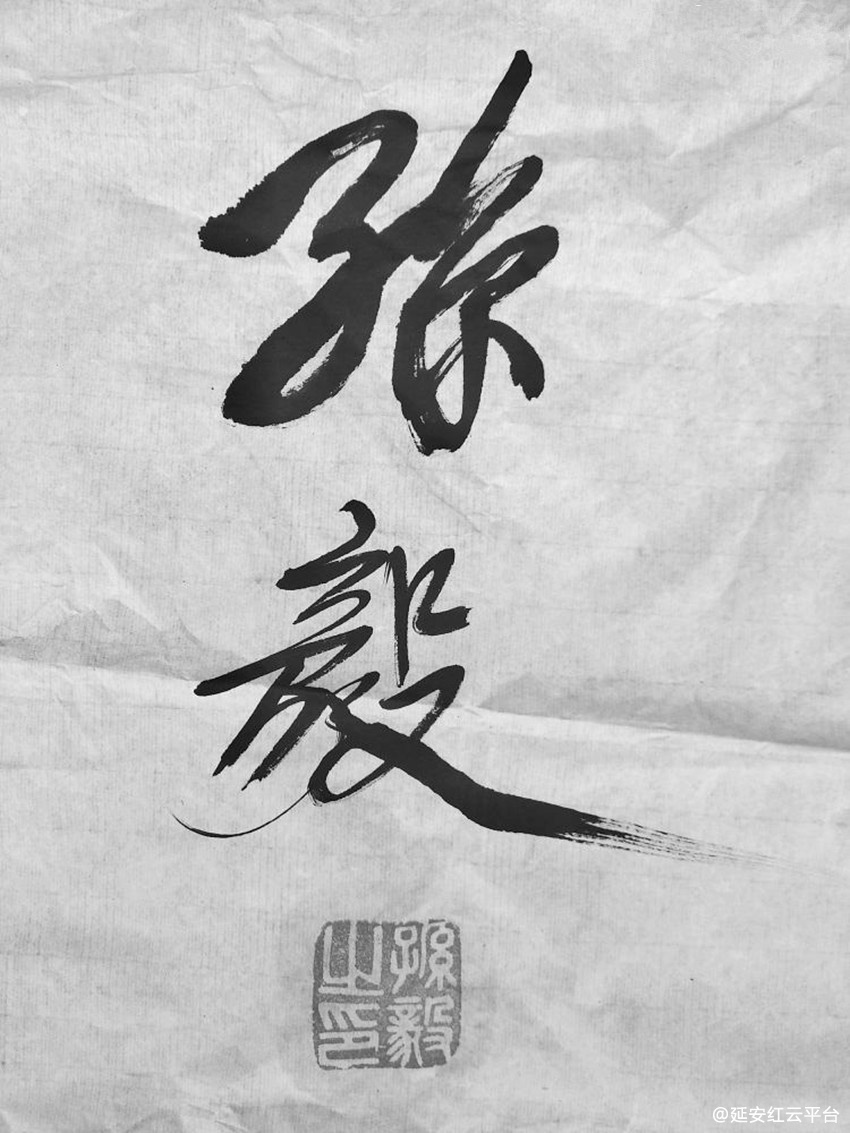 孫
毅
孫毅之印
@延安红云平台